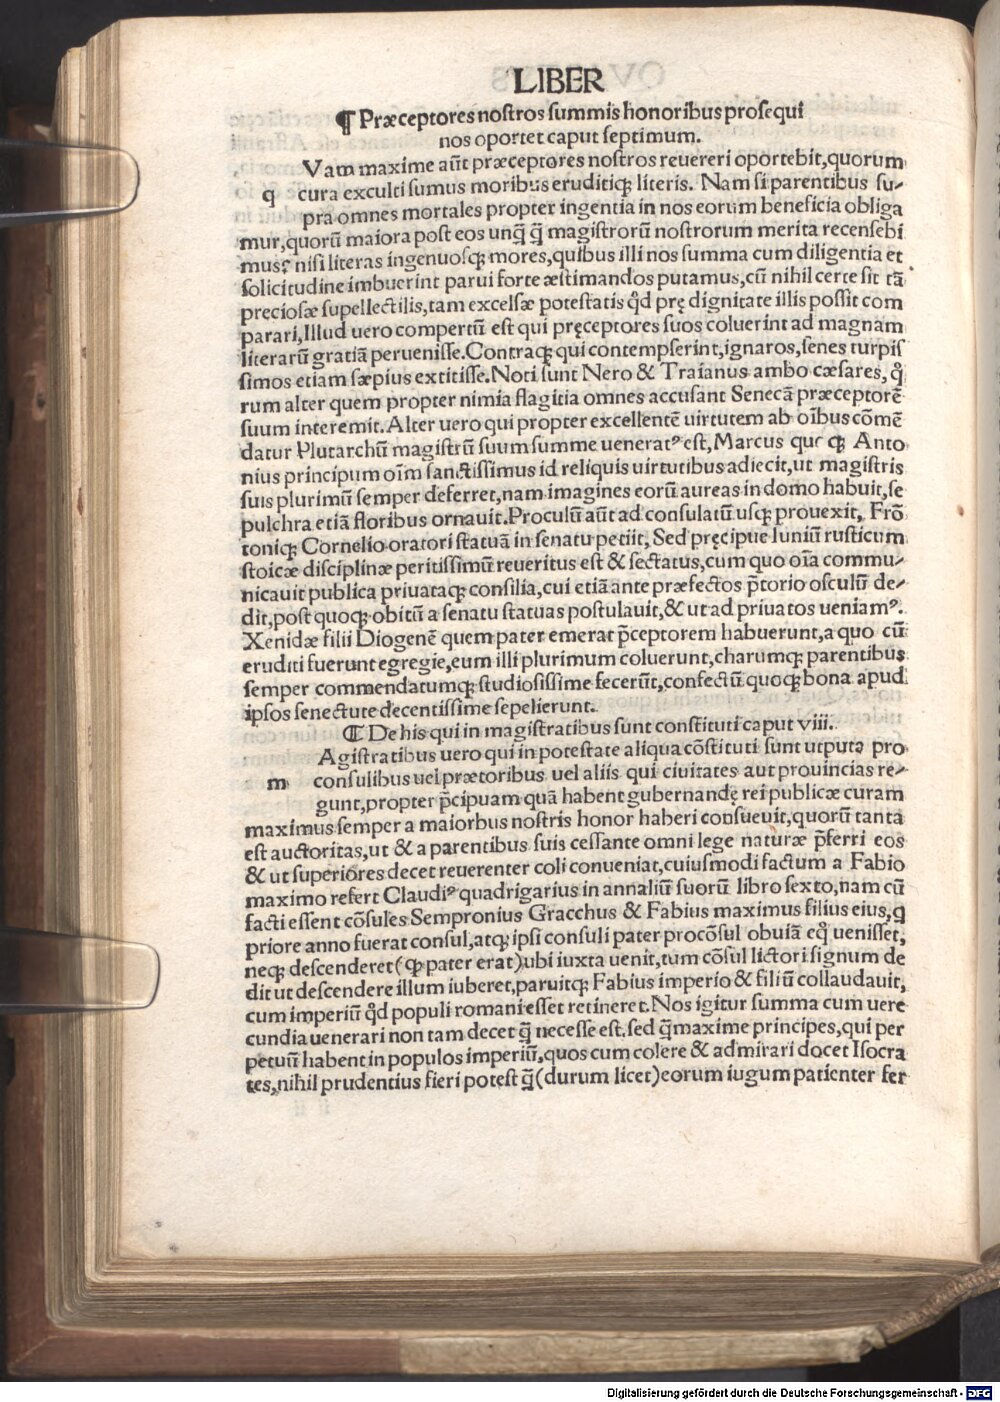 LIBER
¶ Præceptores nostros summis honoribus prosequi
nos oportet caput septimum.
Vam maxime aũt præceptores nostros reuereri oportebit, quorum
q cura exculti sumus moribus eruditiqꝫ literis. Nam si parentibus su-
pra omnes mortales propter ingentia in nos eorum beneficia obliga
mur, quorũ maiora post eos unq̃ q̃ magistrorũ nostrorum merita recensebi
mus? nisi literas ingenuosqꝫ mores, quibus illi nos summa cum diligentia et
solicitudine imbuerint parui forte æstimandos putamus, cũ nihil certe sit tã
preciosæ supellectilis, tam excelsæ potestatis qd̾ prę dignitate illis possit com
parari, Illud uero compertũ est qui pręceptores suos coluerint ad magnam
literarũ gratiã peruenisse. Contraqꝫ qui contempserint, ignaros, senes turpis
simos etiam sæpius extitisse. Noti sunt Nero & Traianus ambo cæsares, quo̾
rum alter quem propter nimia flagitia omnes accusant Senecã præceptorẽ
suum interemit. Alter uero qui propter excellentẽ uirtutem ab oĩbus cõmẽ
datur Plutarchũ magistrũ suum summe ueneratꝰ est, Marcus quoqꝫ Anto
nius principum oĩm sanctissimus id reliquis uirtutibus adiecit, ut magistris
suis plurimũ semper deferret, nam imagines eorũ aureas in domo habuit, se
pulchra etiã floribus ornauit. Proculũ aũt ad consulatũ usqꝫ prouexit, Frõ
toniqꝫ Cornelio oratori statuã in senatu petiit, Sed pręcipue Iuniũ rusticum
stoicæ disciplinæ peritissimũ reueritus est & sectatus, cum quo oĩa commu-
nicauit publica priuataqꝫ consilia, cui etiã ante præfectos p̃torio osculũ de-
dit, post quoqꝫ obitũ a senatu statuas postulauit, & ut ad priuatos ueniamꝰ.
Xenidæ filii Diogenẽ quem pater emerat p̃ceptorem habuerunt, a quo cũ
eruditi fuerunt egregie, eum illi plurimum coluerunt, charumqꝫ parentibus
semper commendatumqꝫ studiosissime fecerũt, confectũ quoqꝫ bona apud
ipsos senectute decentissime sepelierunt.
¶ De his qui in magistratibus sunt constituti caput viii.
Agistratibus uero qui in potestate aliqua cõstituti sunt utputa pro
m consulibus uel prætoribus uel aliis qui ciuitates aut prouincias re-
gunt, propter p̃cipuam quã habent gubernandę rei publicæ curam
maximus semper a maiorbus nostris honor haberi consueuit, quorũ tanta
est auctoritas, ut & a parentibus suis cessante omni lege naturæ p̃ferri eos
& ut superiores decet reuerenter coli conueniat, cuiusmodi factum a Fabio
maximo refert Claudiꝰ quadrigarius in annaliũ suorũ libro sexto, nam cũ
facti essent cõsules Sempronius Gracchus & Fabius maximus filius eius, q
priore anno fuerat consul, atqꝫ ipsi consuli pater procõsul obuiã eq̊ uenisset,
neqꝫ descenderet (qꝫ pater erat) ubi iuxta uenit, tum cõsul lictori signum de
dit ut descendere illum iuberet, paruitqꝫ Fabius imperio & filiũ collaudauit,
cum imperiũ qd̾ populi romani esset retineret. Nos igitur summa cum uere
cundia uenerari non tam decet q̃ necesse est. sed q̃maxime principes, qui per
petuũ habent in populos imperiũ, quos cum colere & admirari docet Isocra
tes, nihil prudentius fieri potest q̃ (durum licet) eorum iugum patienter fer
Digitalisierung gefördert durch die Deutsche Forschungsgemeinschaft - DFG